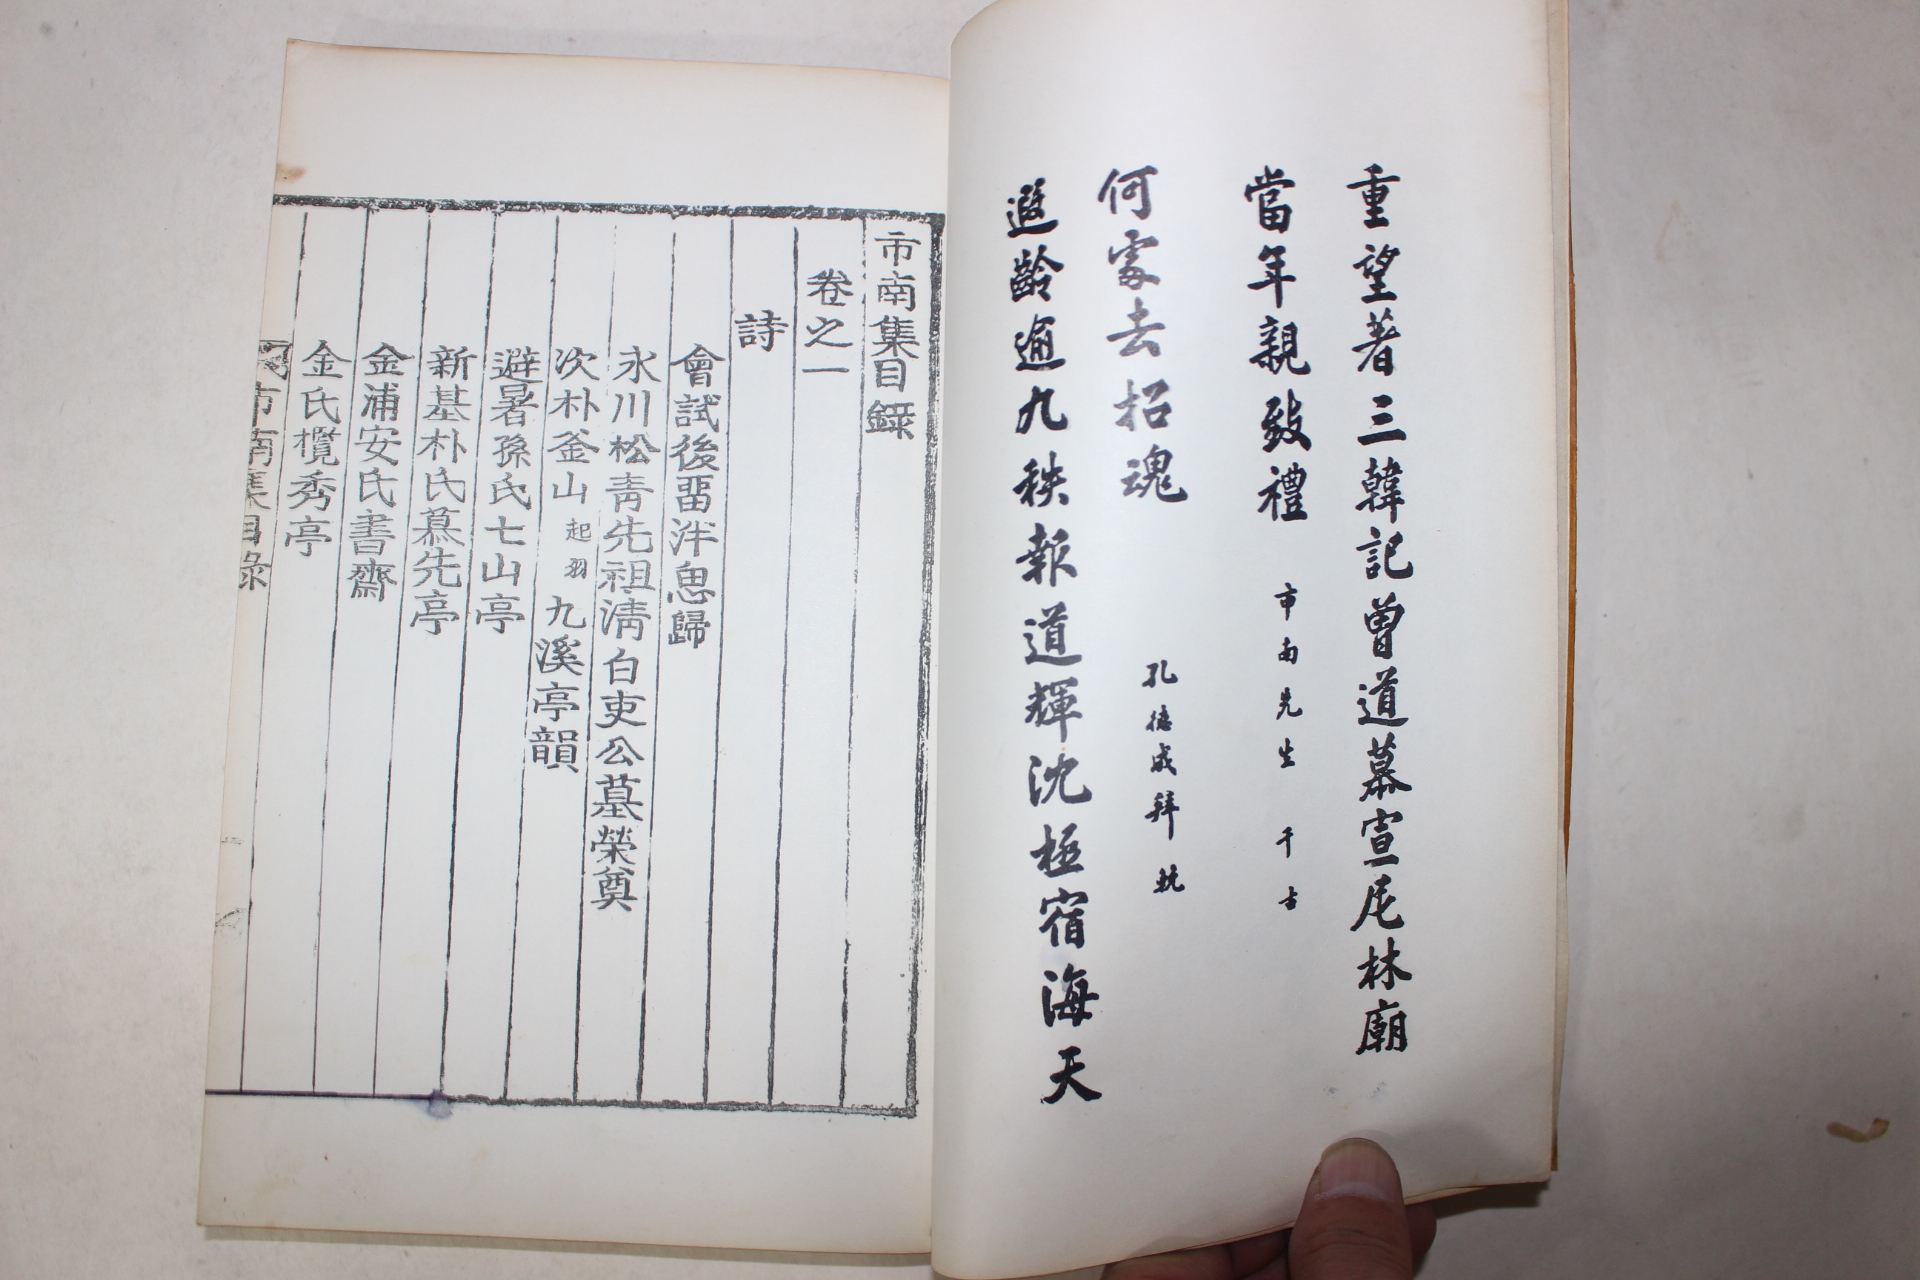 重望著三韓記曾道幕宣尼林廟
當年親致禮
市南先生 千古
何處去招魂
孔德成拜輓
遐齡逾九秩報道輝沈極宿海天
市南集目錄
卷之一
詩
會試後留泮思歸
永川松青先祖淸白吏公墓榮奠
次朴釜山起羽九溪亭韻
避暑孫氏七山亭
新基朴氏慕先亭
金浦安氏書齋
金氏欖秀亭
市南集目錄